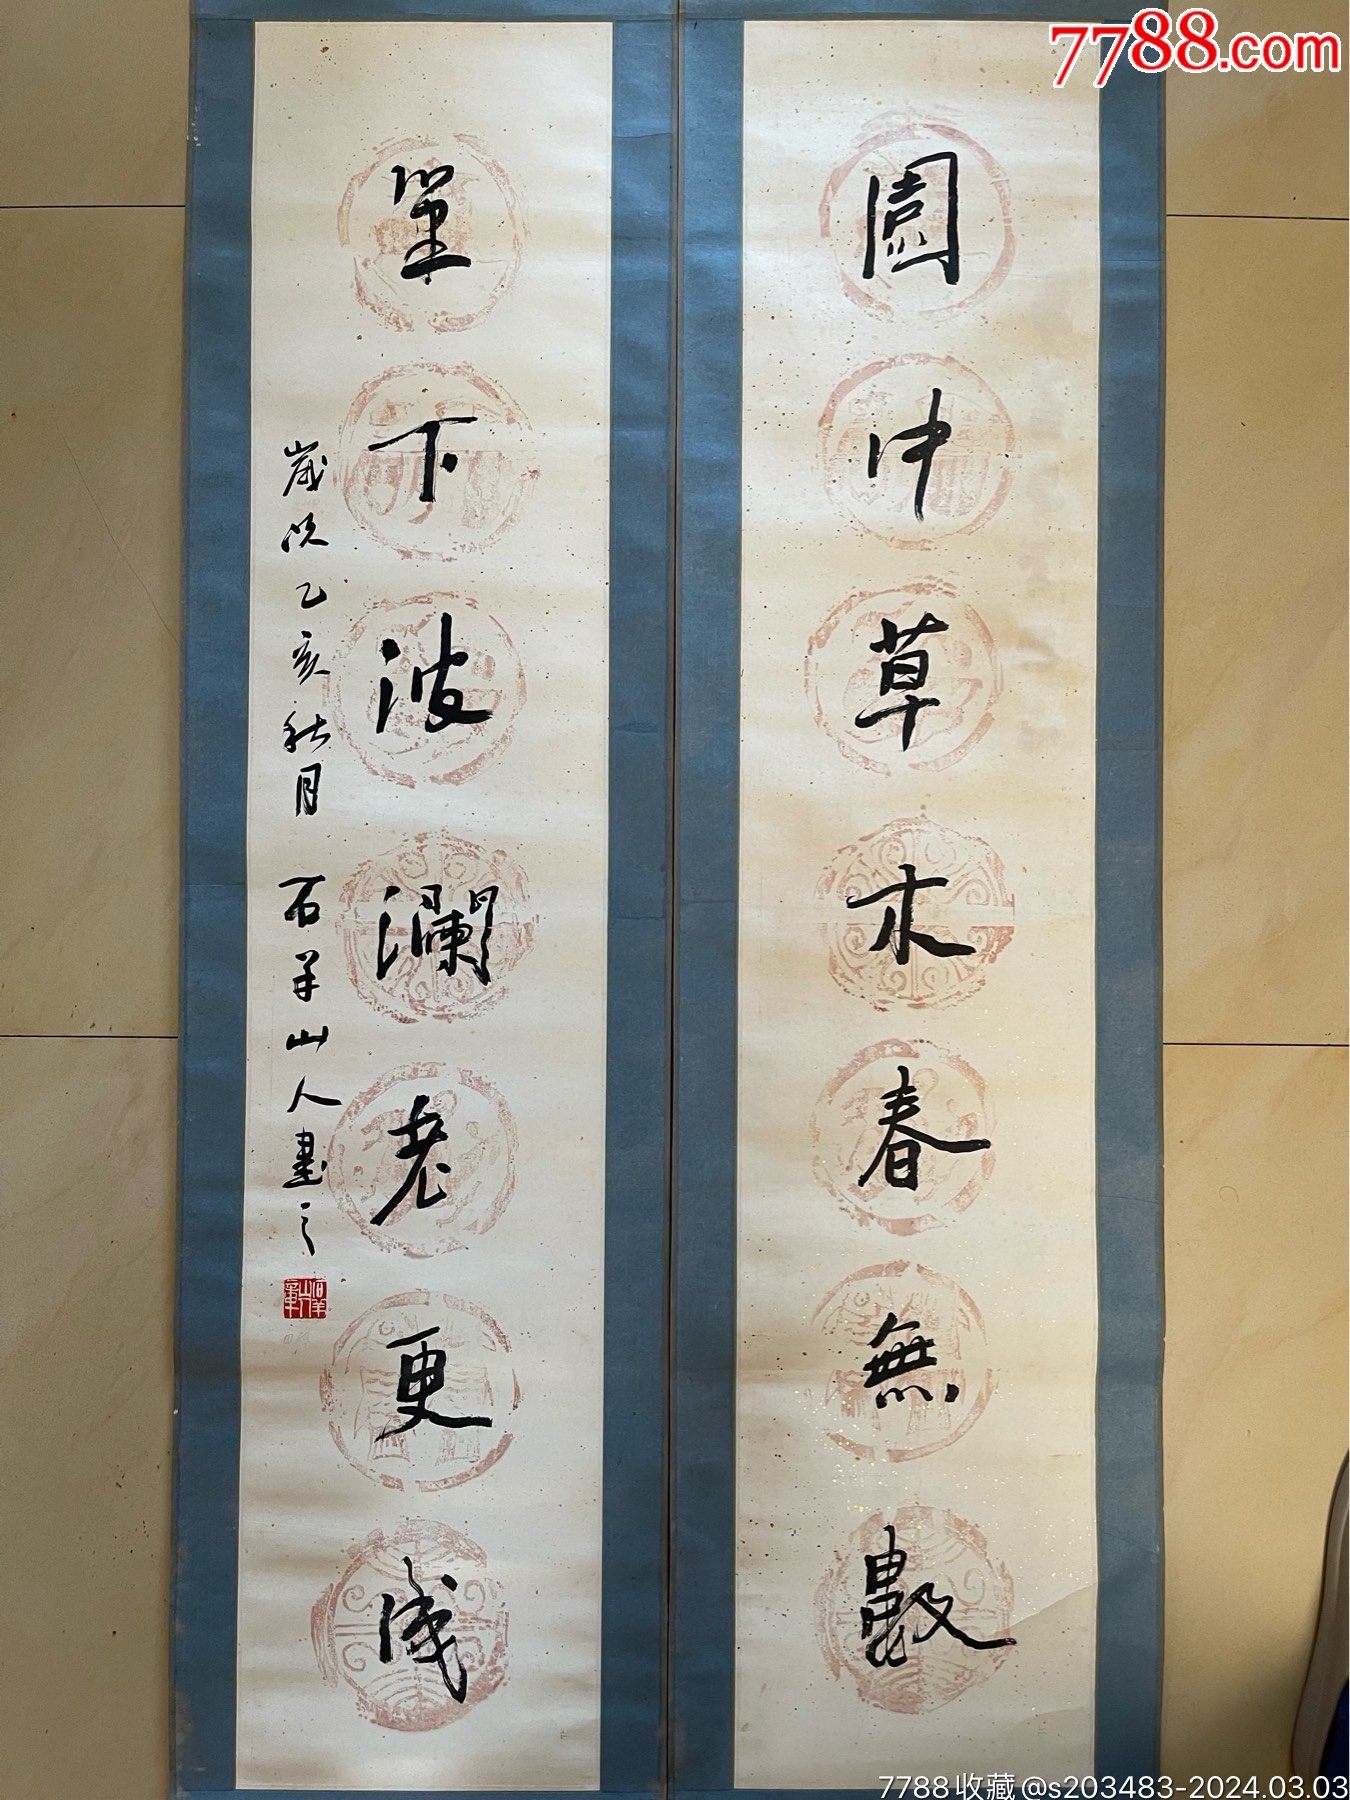 7788.com
園中草木春無數
筆下波瀾老更成
歲次乙亥秋月 石羊山人書之
7788收藏@s203483-2024.03.03